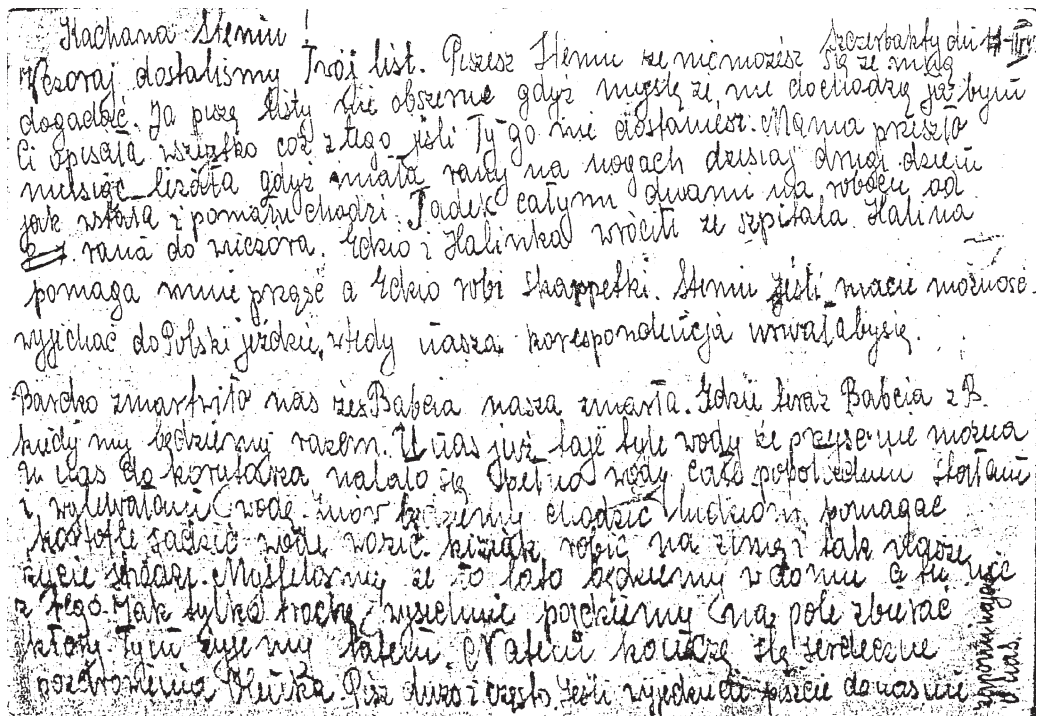 Kachana Steniu!
Szczerbakty dn. 17-III
Wczoraj dostaliśmy Twój list. Piszesz Steniu że nie możesz się ze mną
dogadać. Ja piszę listy nie obszerne gdyż myślę że nie dochodzią ja bym
Ci opisała wszystko coż z tego jeśli Ty go nie dostaniesz. Mama przeszło
miesiąc leżała gdyż miała rany na nogach dzisiaj drugi dzień
jak wstała i pomału chodzi. Tadek całymi dniami na robocie od
rana do wieczora. Edzio i Halinka wrócili ze szpitala. Halina
pomaga mnie prząść a Edzio robi skarpetki. Steniu jeśli macie możność
wyjechać do Polski jedźcie, wtedy nasza korespondencja urwałaby się.
Bardzo zmartwiło nas że Babcia nasza zmarła. Gdzie teraz Babcia z B.
kiedy my będziemy razem. U nas już taje tyle wody że przejść nie można
u nas do korytarza nalało się pełno wody całe popołudniu stałam
i wylewałam wodę. Znów będziemy chodzić ludziom pomagać
kartofle sadzić wodę wozić kiziak robić na zimę i tak
życie schodzi. Myślelismy że to lato będziemy w domu a tu nic
z tego. Jak tylko trochę wyschnie pójdziemy na pole zbierać
kłosy. Tym żyjemy latem. Narazie kończę się serdeczne
pozdrowienia Pisz dużo i często. Jeśli wyjedziecie piszcie do nas nie
zapominając
o nas.